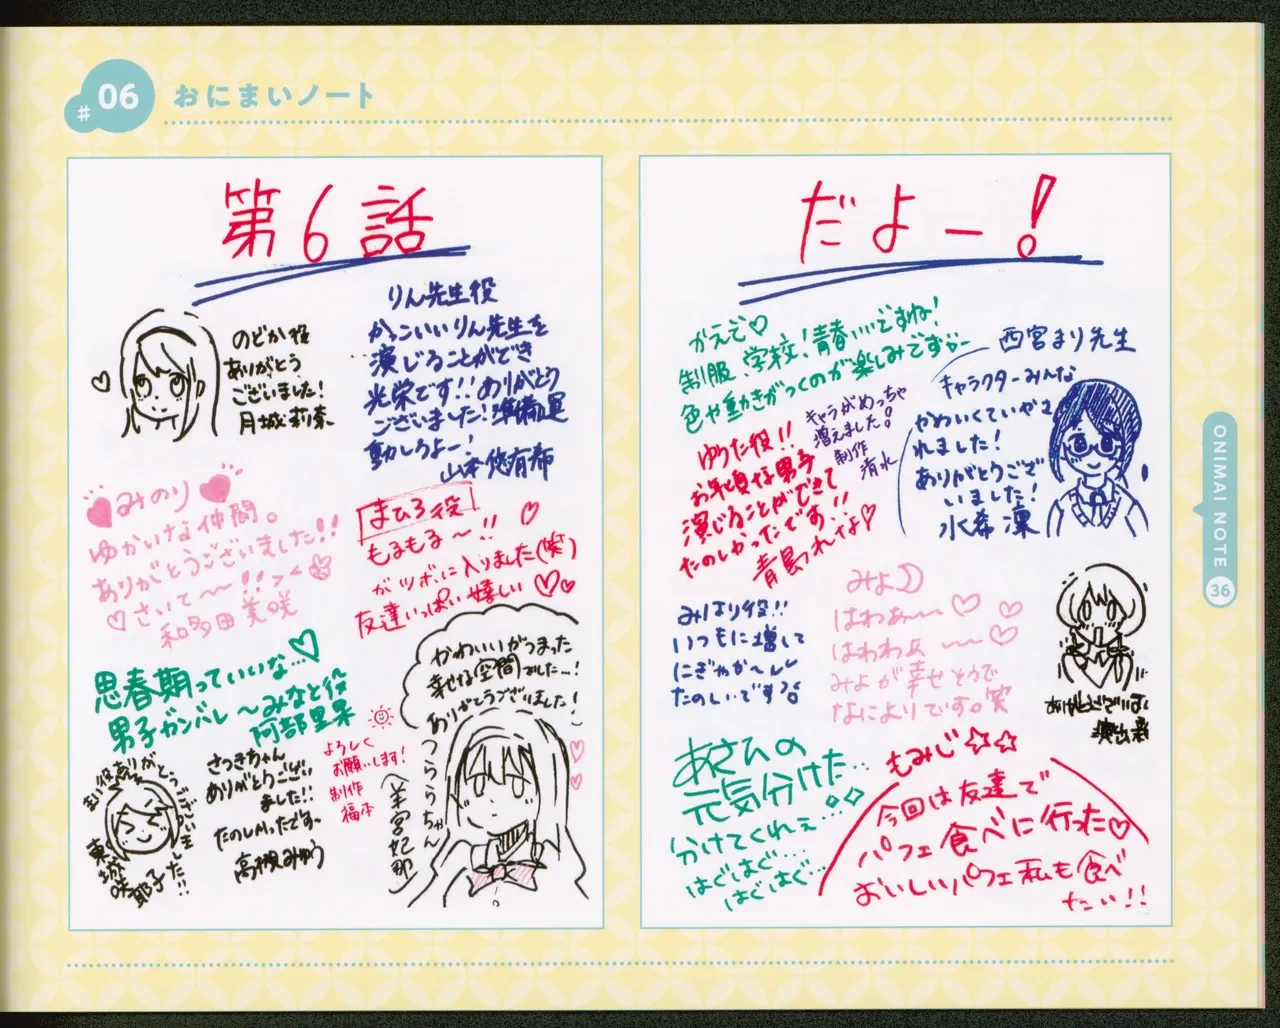 #06 おにまいノート
第6話
のどか役
ありがとう
ございました!
月城莉奈
りん先生役
かっこいいりん先生を
演じることができ
光栄です!!ありがとう
ございました!準備運
動しろよー!
山本悠有希
みのり
ゆかいな仲間。
ありがとうございました!!
さいて〜!!
和多田美咲
まひろ役
もるもる〜!!
がツボに入りました(笑)
友達いっぱい嬉しい♡♡
思春期っていいな…♡
男子ガンバレ〜みなと役
阿部里果
かわいいがつまった
幸せな空間でした…!
ありがとうございました!
つららちゃん
(羊宮妃那)
さつきちゃん
ありがとうござい
ました!!
たのしかったです〜
高槻みゆう
よろしく
お願いします!
制作
福本
ありがとうございました!!
だよー!
かえで♡
制服、学校!青春…ですね!
色や動きがつくのが楽しみです
西宮まり先生
キャラクターみんな
かわいくていやさ
れました!
ありがとうござ
いました!
水希凜
キャラがめっちゃ
増えました。
制作
清水
ゆうた役!!
お年頃な男子
演じることができて
たのしかったです!!
みはり役!!
いつもに増して
にぎやか〜
たのしいです
みよ
はわぁ〜♡
はわわよ〜♡
みよが幸せそうで
なによりです。笑
あさひの
元気分けた…
分けてくれぇ…
はぐはぐ…
はぐはぐ…
もみじ☆☆
今回は友達で
パフェ食べに行った♡
おいしいパフェ私も食べ
たい!!
ONIMAI NOTE
36